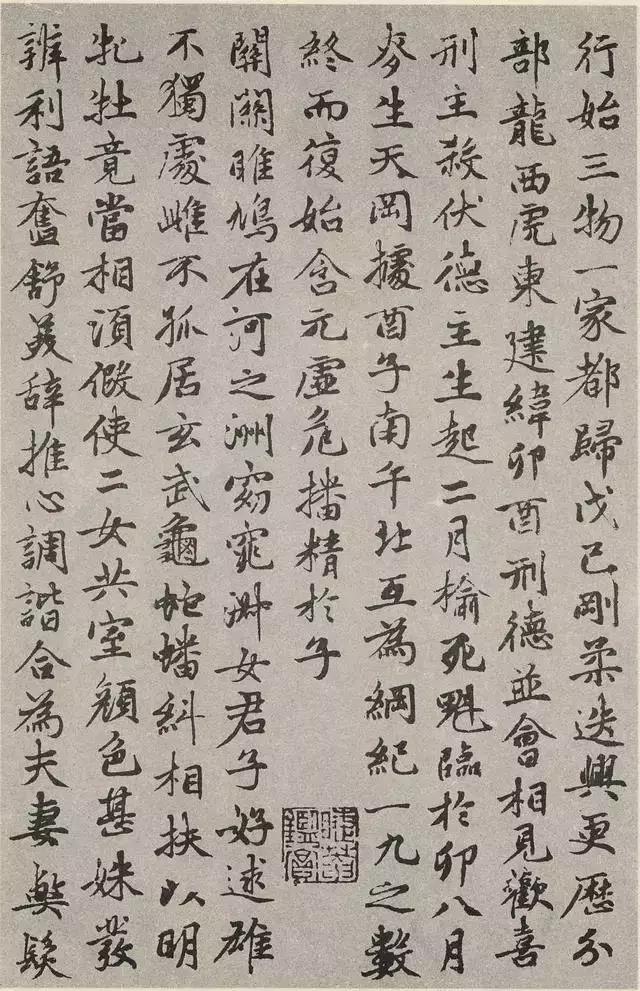 行始三物一家都歸戊己剛柔迭興更歷分
部龍西虎東建緯卯酉刑德並會相見歡喜
刑主殺伏德主生起二月榆死魁臨於卯八月
麥生天岡據酉子南午北互為綱紀一九之數
終而復始含元虛危播精於子
關關雎鳩在河之洲窈窕淑女君子好逑雄
不獨處雌不孤居玄武龜蛇蟠糾相扶以明
牝牡竟當相須假使二女共室顏色甚姝發
辨利語奮舒美辭推心調諧合為夫妻獘髮